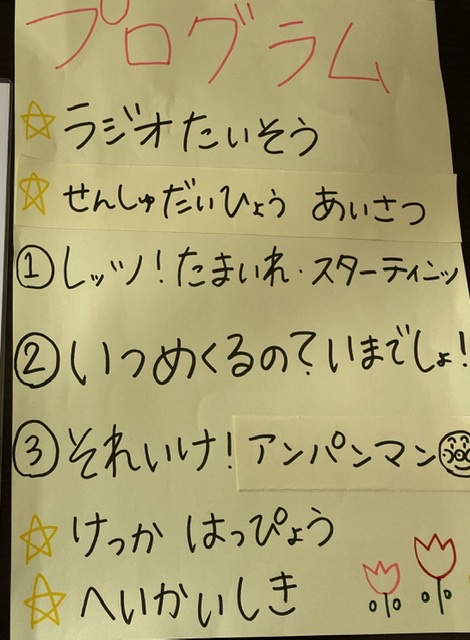 プログラム
ラジオたいそう
せんしゅだいひょう あいさつ
①レッツ!たまいれ・スターティニッ
②いつめくるの?いまでしょ!
③それいけ!アンパンマン
けっか はっぴょう
へいかいしき